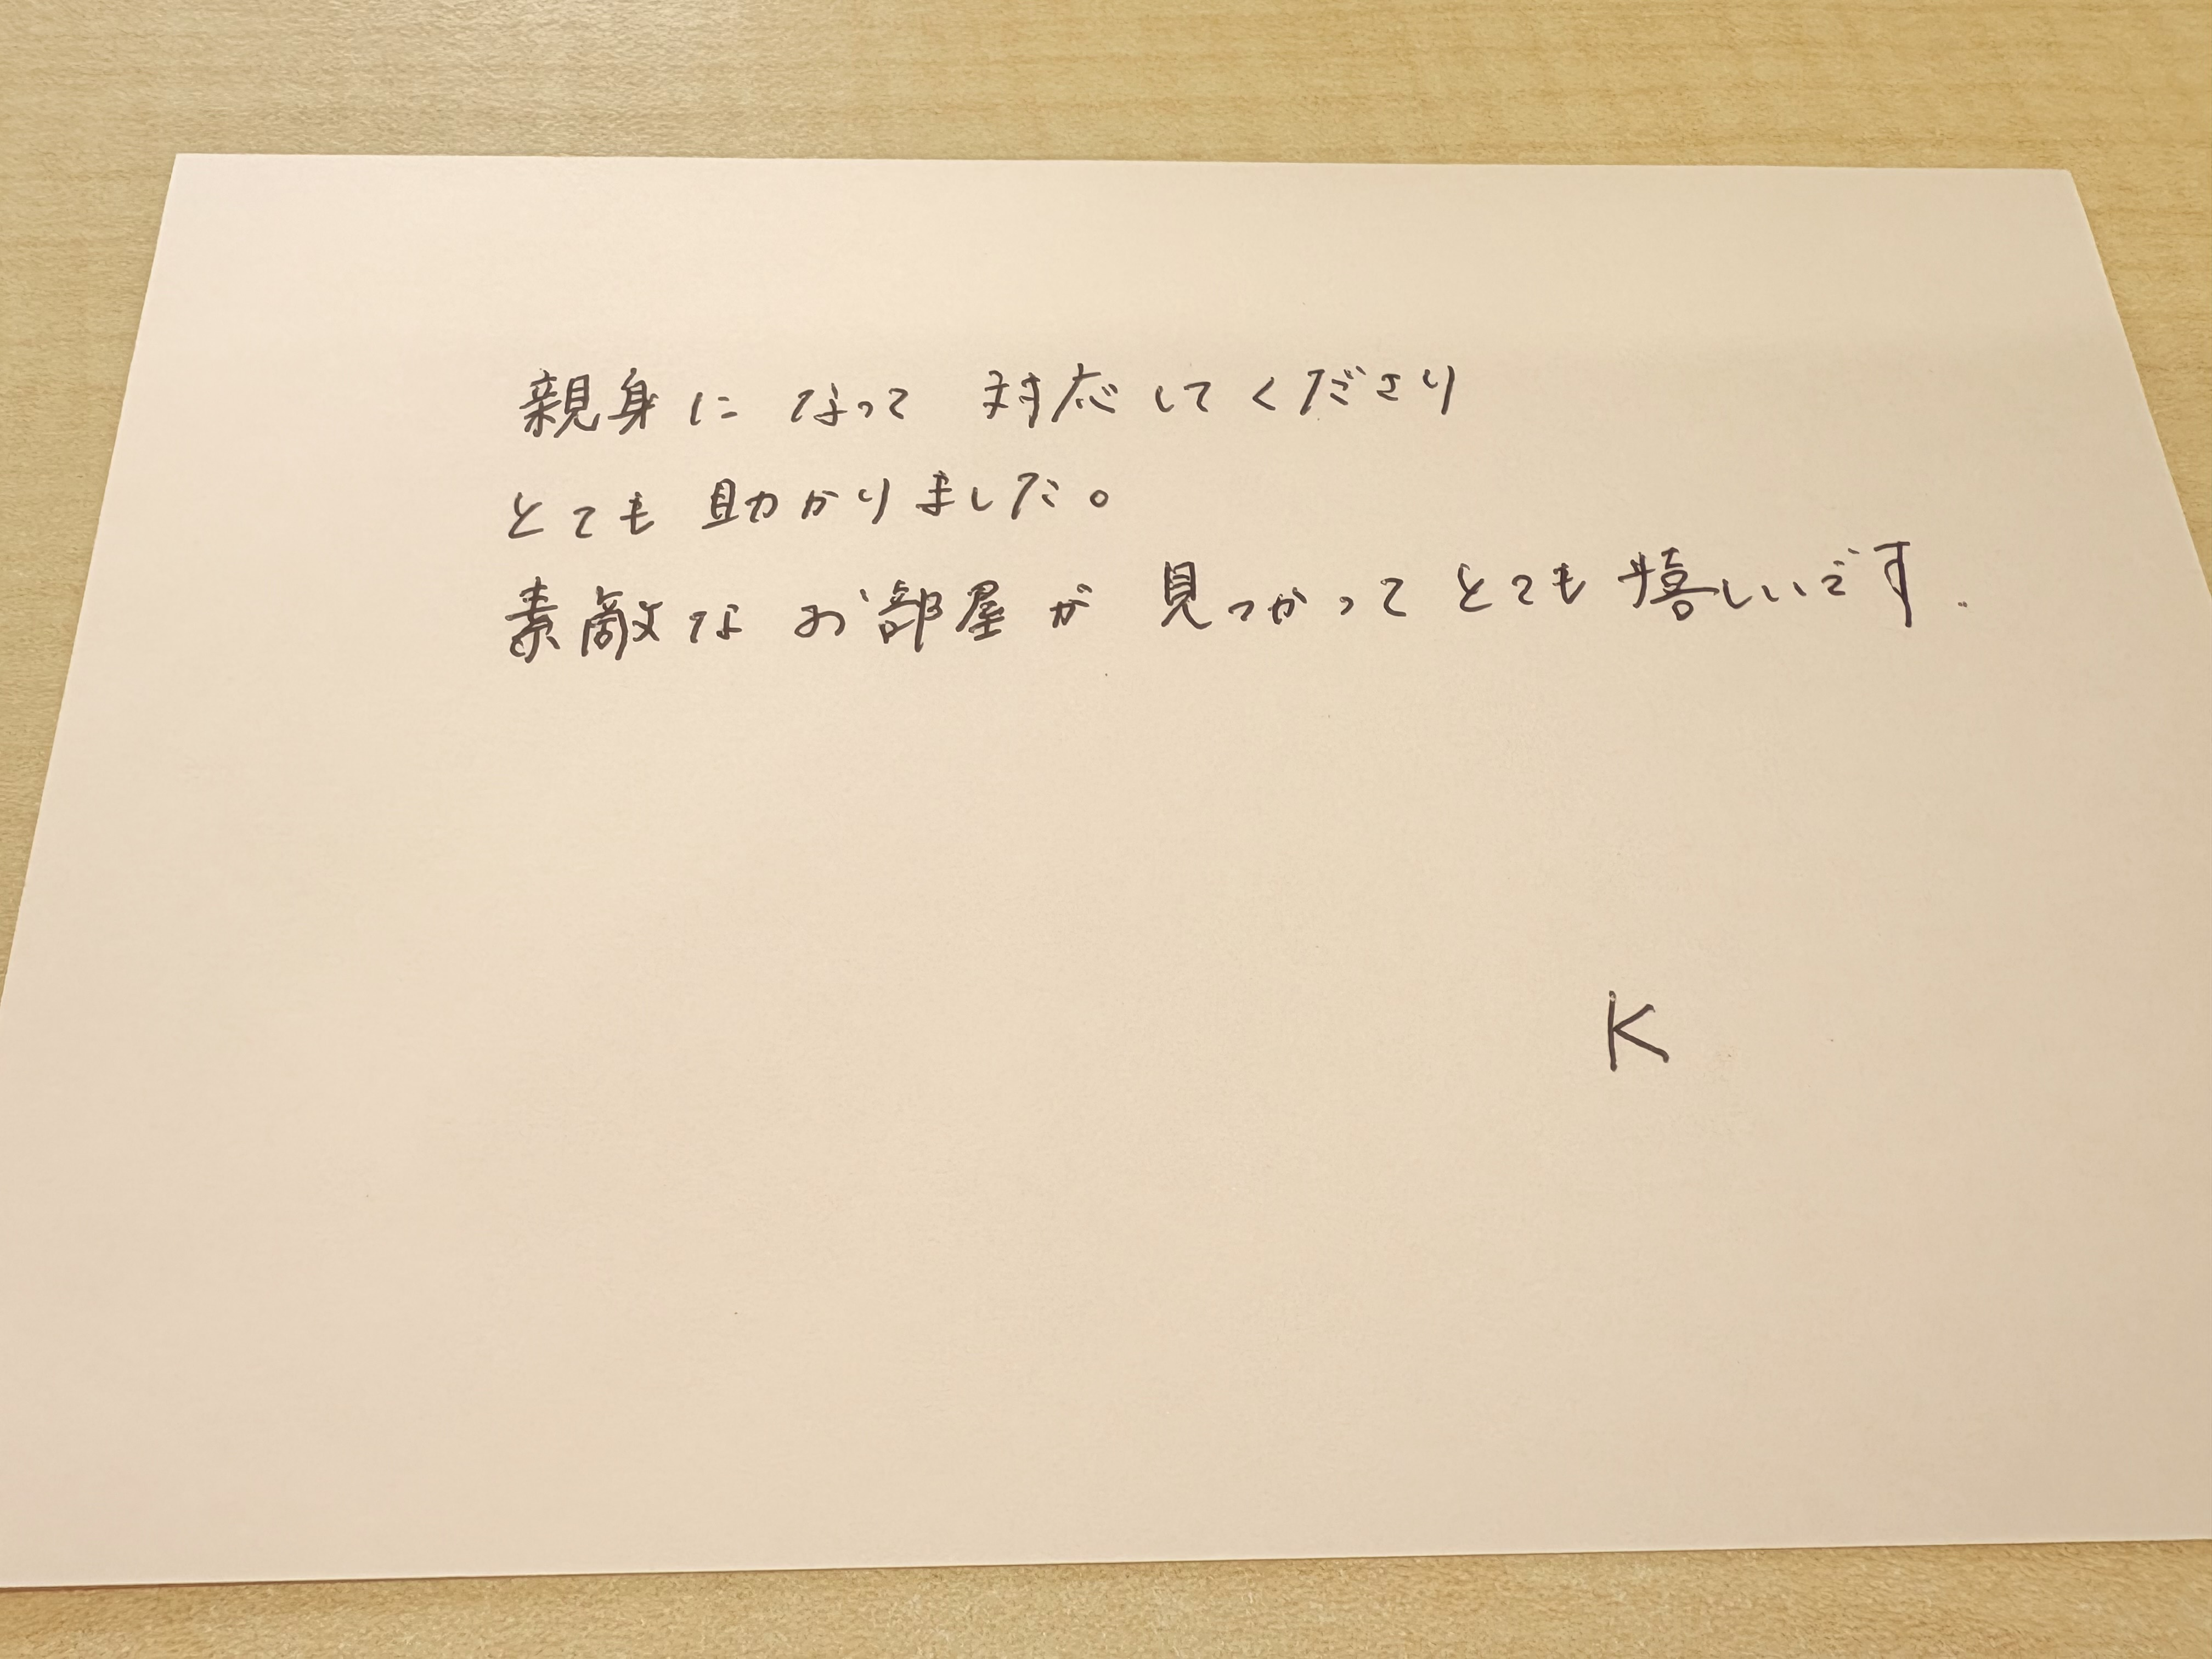 親身になって対応してくださり
とても助かりました。
素敵なお部屋が見つかってとても嬉しいです.
K